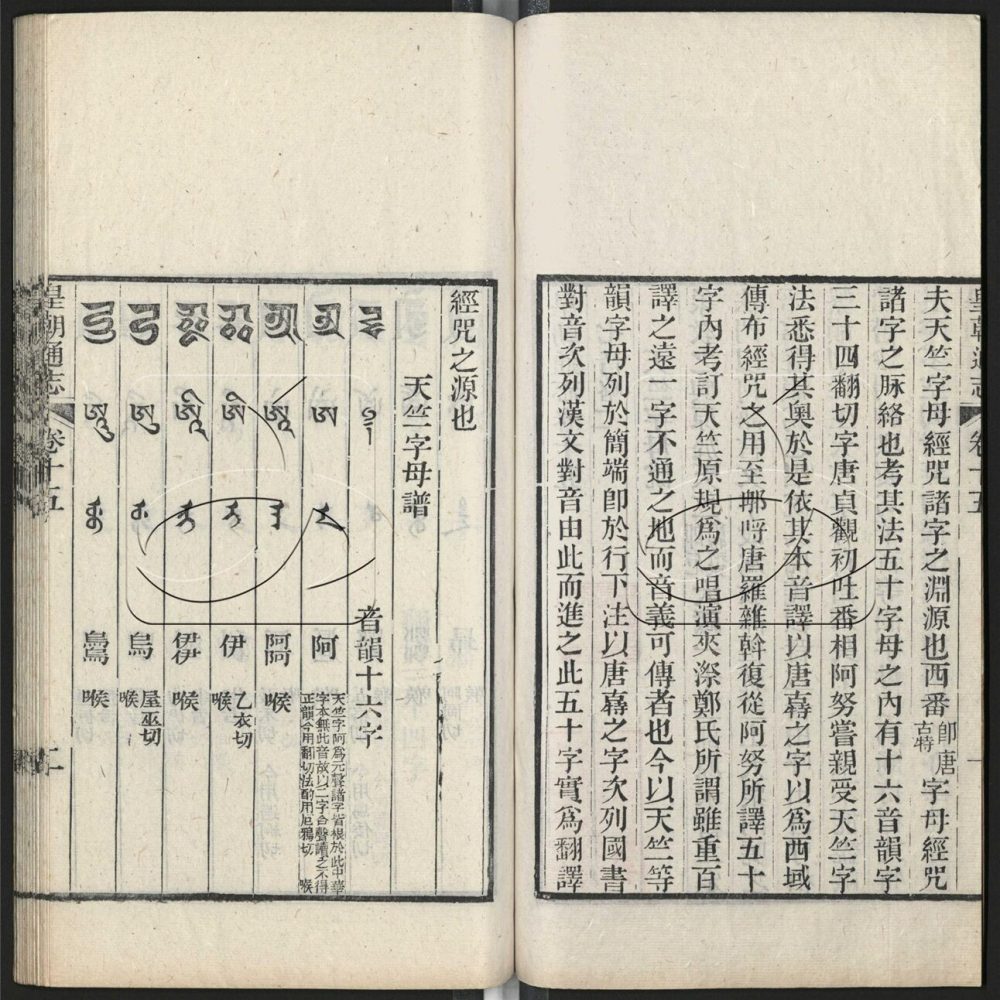 皇朝通志 卷十五 一
夫天竺字母經咒諸字之淵源也西番卽唐古特字母經咒
諸字之脉絡也考其法五十字母之內有十六音韻字
三十四翻切字唐貞觀初吐番相阿努嘗親受天竺字
法悉得其奥於是依其本音譯以唐古特之字以爲西域
傳布經咒之用至哪哷唐羅雜斡復從阿努所譯五十
字內考訂天竺原規爲之唱演夾漈鄭氏所謂雖重百
譯之遠一字不通之地而音義可傳者也今以天竺等
韻字母列於簡端卽於行下注以唐古特之字次列國書
對音次列漢文對音由此而進之此五十字實爲翻譯
經咒之源也
天竺字母譜
音韻十六字
ཨ 阿 天竺字阿爲元聲諸字皆根於此中華字本無此音故以二字合聲讀之不得正韻今用翻切法酌用厄鴉切 喉
ཨཱ 阿阿 喉
ཨི 伊 乙衣切 喉
ཨཱི 伊伊 喉
ཨུ 烏 屋巫切 喉
ཨཱུ 烏烏 喉
皇朝通志 卷十五